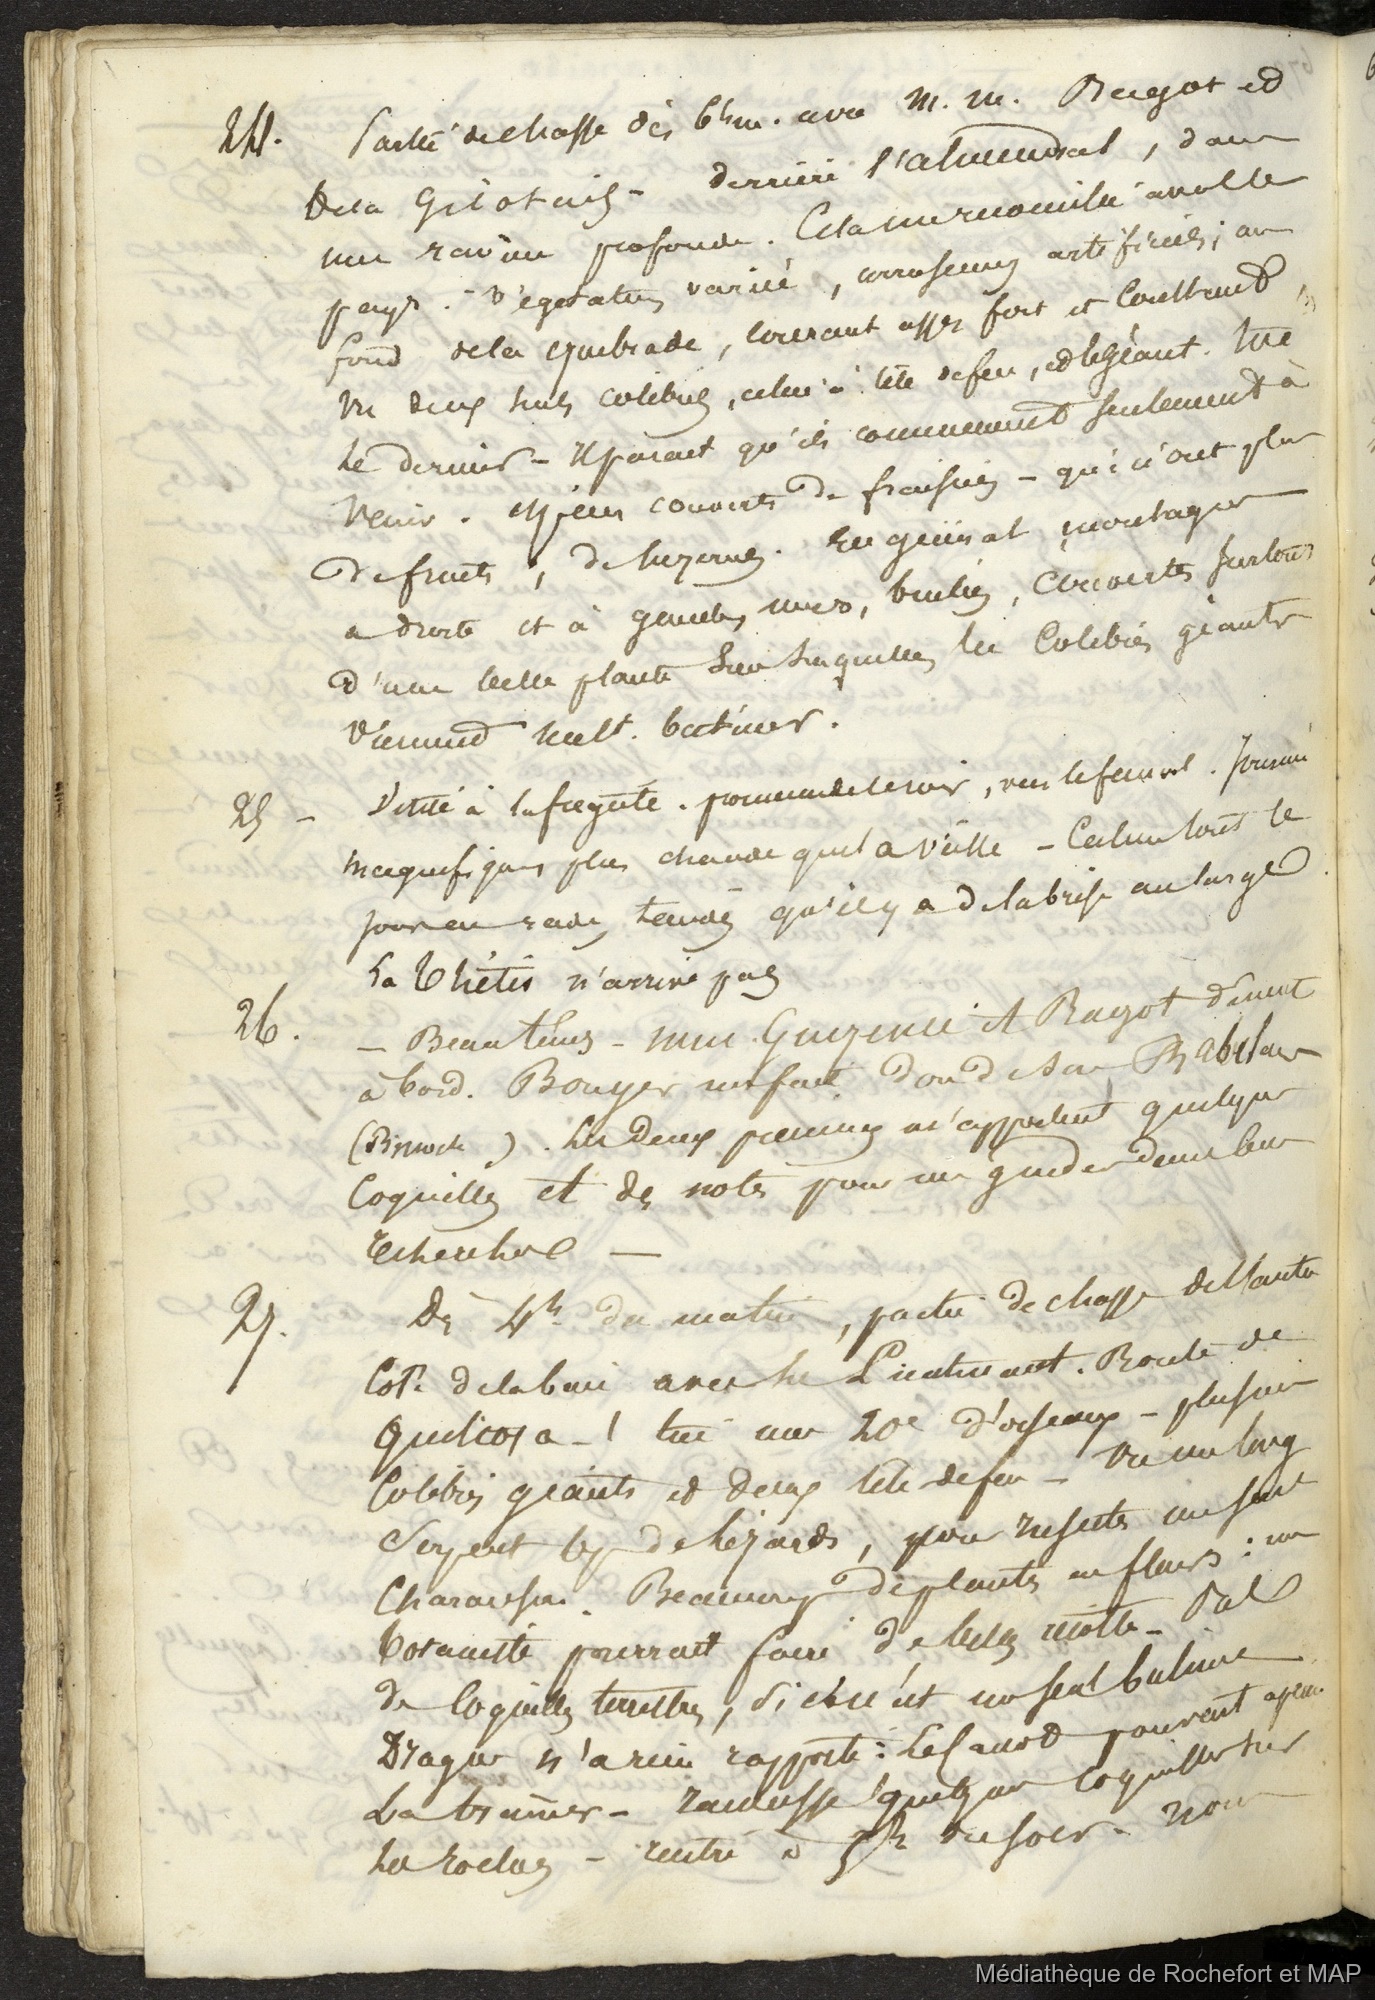 24. Partie de chasse dès 6h m. avec M. M. Ragot et
De la derrière l'almendral, dans
une ravine profonde. Cela me réconcilie avec le
pays. Végétation variée, arrosemens artificiels; au
fond de la quebrada, courant assez fort et constant,
vu deux seuls colibris, celui à tête de feu, et le géant. tué
le dernier - Il parait qu'ils commencent seulement à
venir. couverts de fraisiers - qui n'ont plus
de fruits, de luzernes. En général montagnes
à droite et à gauche, nues, brulées, couvertes surtout
d'une belle plante sur laquelle les Colibris géants
viennent butiner.
25 - Visite à la frégate. promenade le soir, vers le fanal. Journée
magnifique, plus chaude que la veille - Calme tout le
jour en rade, tandis qu'il y a de la brise au large
La Thétis n'arrive pas
26. - Beau tems - et Ragot dinent
à bord. Bouyer me fait don de son Rabelais
. Les deux premiers m'apportent quelques
Coquilles et des notes pour me guider dans leur
recherche —
27. Dès 4h du matin, partie de chasse de l'autre
coté de la baie avec le Lieutenant. Route de
Quillota - ! tué une 20e d'oiseaux - plusieurs
Colibris géants et deux tête de feu - Vu un long
Serpent de lézards, pour insectes un seul
Charanson. Beaucoup de plantes en fleurs : un
botaniste pourrait faire de belles récoltes - Pas
de Coquilles terrestres, si ce n'est un seul bulime
Drague n'a rien rapporté : Le Canot pouvant à peine
La trainer - ramassé quelques coquilles sur
les roches - rentré à 5h du soir - nous
Médiathèque de Rochefort et MAP